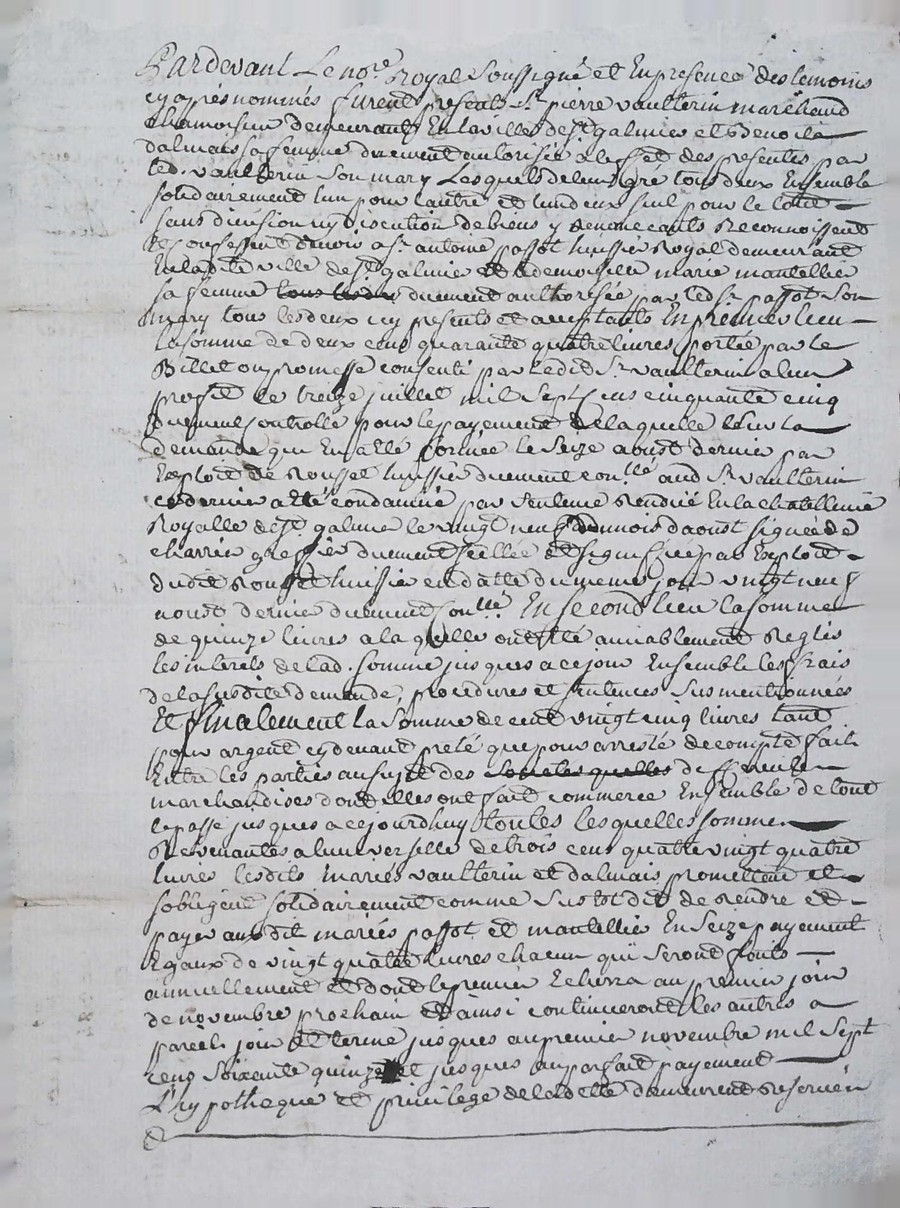 Pardevant Le no.re Royal Soussigné et En presence des temoins
cy apres nommés furent presents S.r pierre vaulterin marchand
chamoiseur demeurant En la ville de S.t galmier et benoite
dalmais sa femme duement autorisée a l'effet des presentes par
led. vaulterin son mary Lesquels de leur gré tous deux Ensemble
solidairement l'un pour l'autre et l'un deux seul pour le tout
sans division ny discution de biens y renonceants Reconnoissent
et confessent devoir a S.r antoine passot huissier Royal demeurant
En lad.te ville de S.t galmier et a demoiselle marie mantellier
sa femme duement authorisée par led. S.r passot son
mary tous les deux icy presents et acceptants En premier lieu
la somme de deux cent quarante quatre livres portée par le
Billet ou promesse consenti par led. S.r vaulterin a leur
profit le treize juillet mil sept cens cinquante cinq
duement controllé pour le payement de laquelle et sur la
demande qui En a été formée le seize aoust dernier par
Exploit de Roussel huissier duement con.llé aud S.r vaulterin
ce dernier a eté condamné par sentence Rendue En la chatellenie
Royalle de S.t galmier le vingt neuf du mois d'aoust signée de
charrin greffier duement scellée et signifiée par Exploit
dudit Roussel huissier en datte du meme jour vingt neuf
aoust dernier duement con.llé En second lieu la somme
de quinze livres a laquelle ont été amiablement Reglés
les interets de lad. somme jusques a ce jour Ensemble les frais
de la susdite demande, procedures et sentences sus mentionnées
Et finalement la somme de cent vingt cinq livres tant
pour argent cy devant preté que pour arresté de compte fait
Entre les parties au sujet des differentes
marchandises dont elles ont fait commerce Ensemble de tout
le passé jusques a cejourd'huy toutes lesquelles sommes
Revenantes a l'universelle de trois cent quatre vingt quatre
livres lesdits mariés vaulterin et dalmais promettent et
s'obligent solidairement comme sus est dit de rendre et
payer aux dit mariés passot et mantellier En seize payement
Egaux de vingt quatre livres chacun qui seront faits
annuellement et dont le premier Echerra au premier join
de novembre prochain et ainsi continueront les autres a
pareil join et terme jusques au premier novembre mil sept
cens soixante quinze et jusques au parfait payement
L'hypotheque et privilege de la dette demeurent reservés